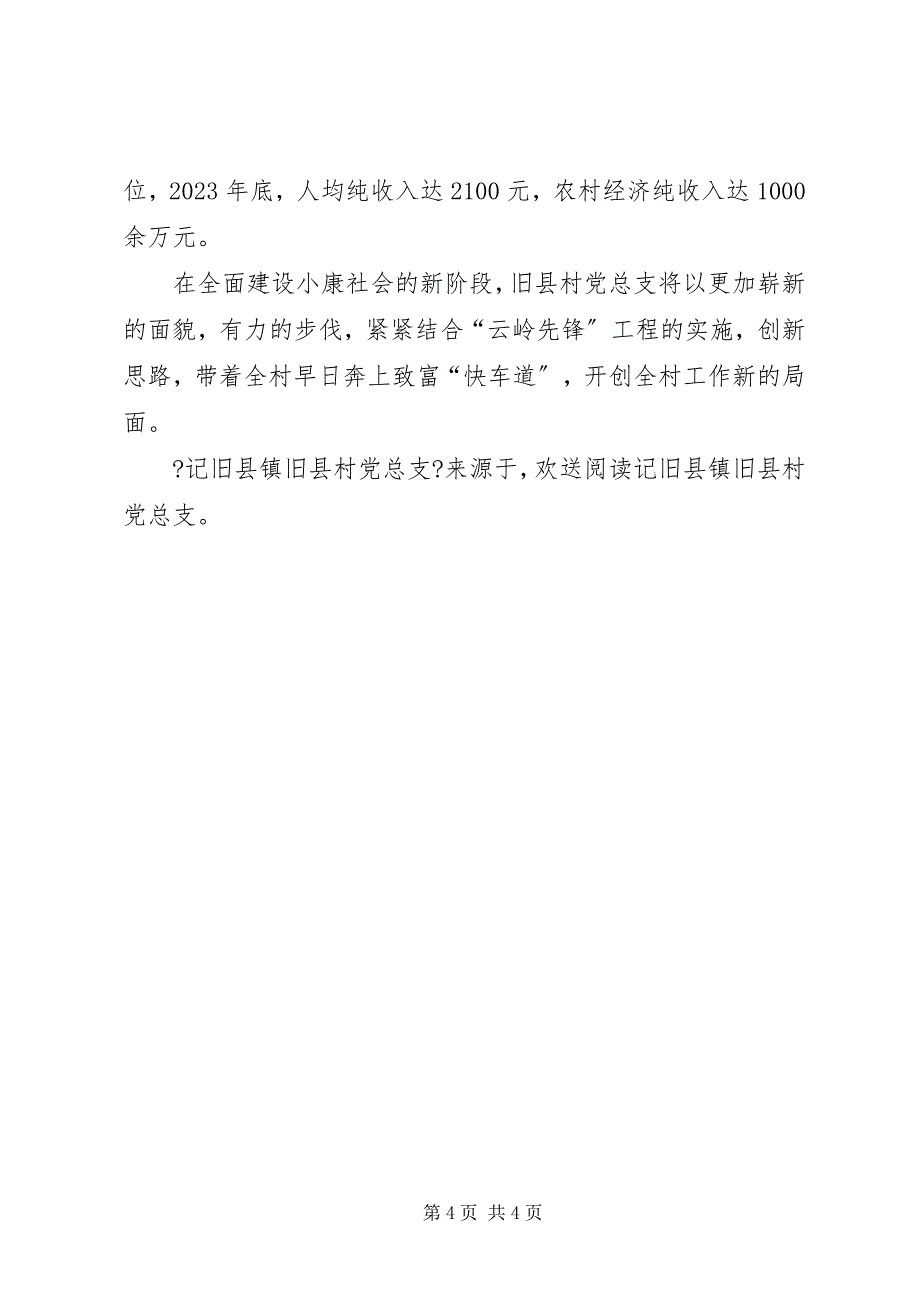 位，2023 年底，人均纯收入达 2100 元，农村经济纯收入达 1000
余万元。
在全面建设小康社会的新阶段，旧县村党总支将以更加崭新
的面貌，有力的步伐，紧紧结合“云岭先锋〞工程的实施，创新
思路，带着全村早日奔上致富“快车道〞，开创全村工作新的局
面。
?记旧县镇旧县村党总支?来源于，欢送阅读记旧县镇旧县村
党总支。
第 4 页 共 4 页